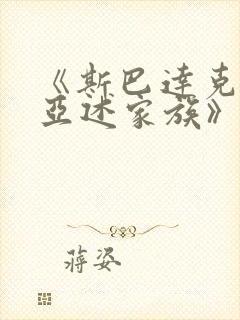 《斯巴达克
亚述家族》
蒋姿